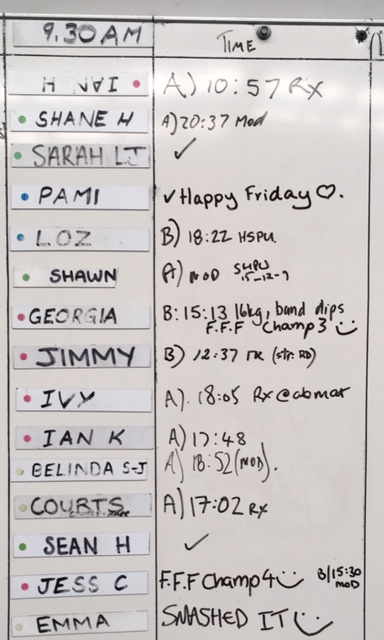 9.30AM TIME
IAN H A) 10:57 Rx
SHANE H A) 20:37 Mod
SARAH LJ ✓
PAMI ✓ Happy Friday ♡.
LOZ B) 18:22 HSPU
SHAWN A) MOD SHPU 15-12-9
GEORGIA B: 15:13 16kg, band dips
F.F.F Champ 3
JIMMY B) 12:37
IVY A). 18:05 Rx @abmat
IAN K A) 17:48
BELINDA S-J A) 18:52 (MOD).
COURTS A) 17:02 Rx
SEAN H ✓
JESS C F.F.F Champ 4 B/15:30 MOD
EMMA SMASHED IT